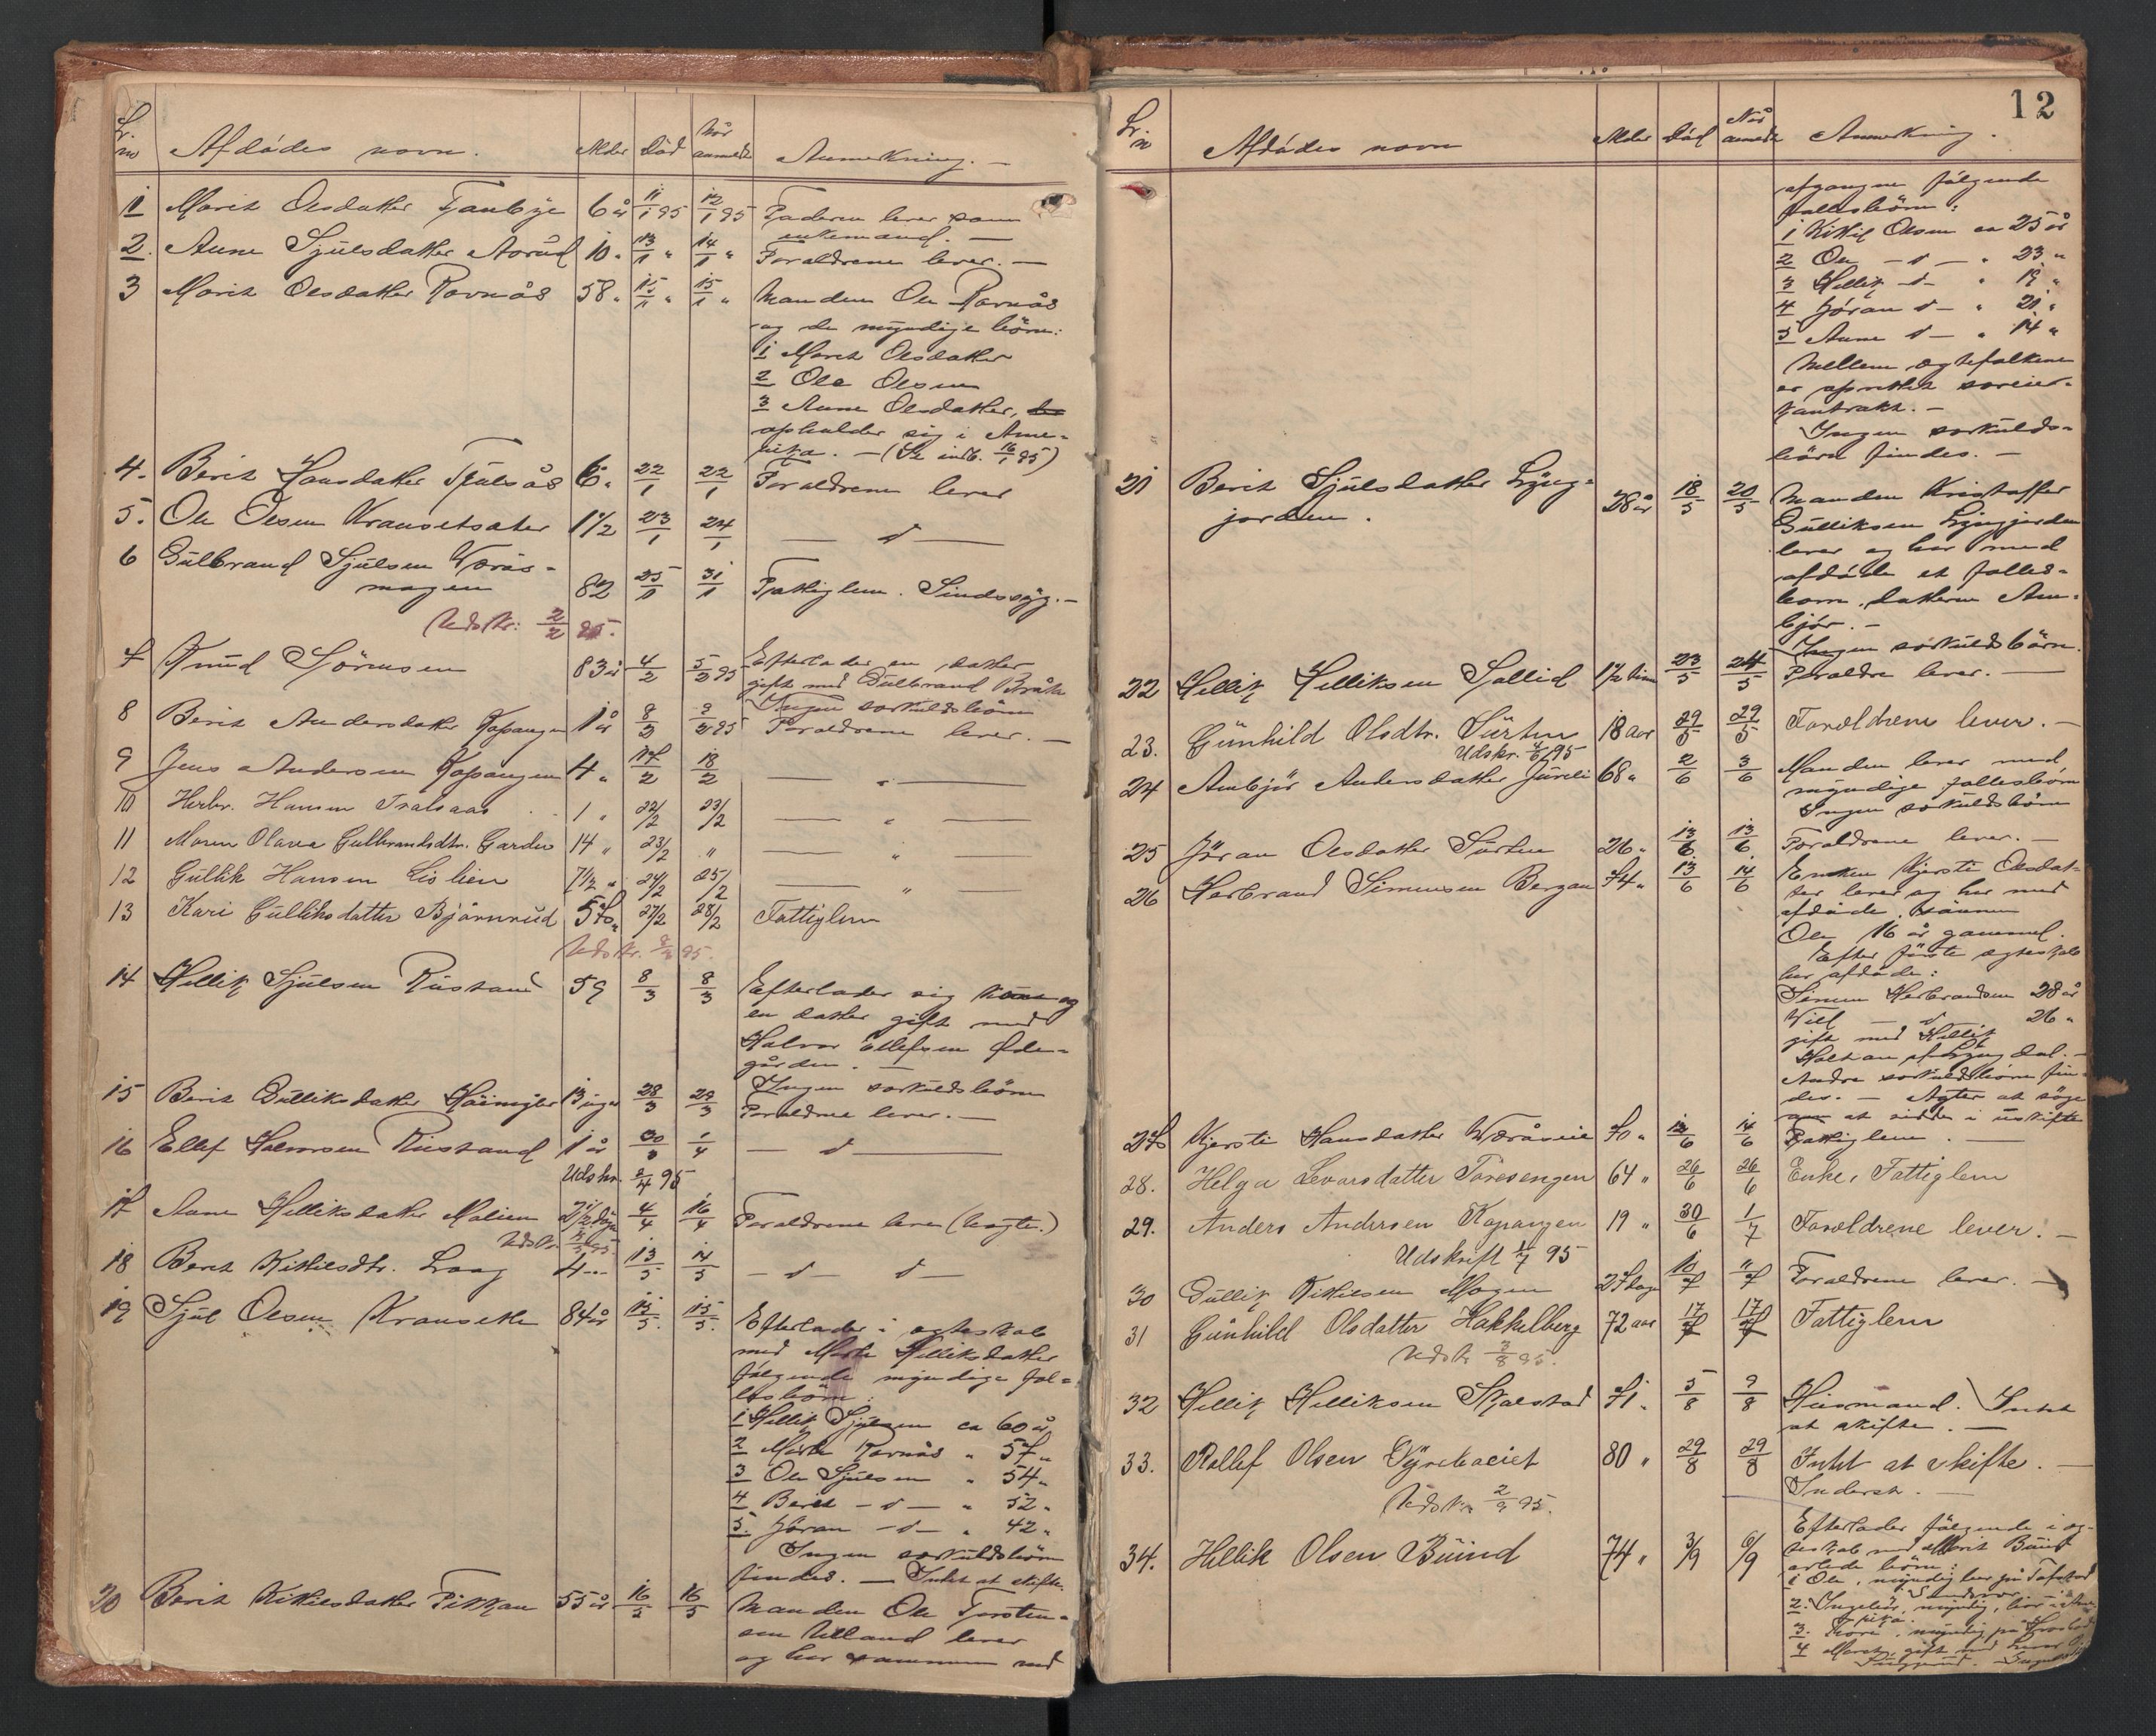 Lr. no Afdødes navn. Alder Død Når anmeldt Anmerkning. —
1 Marit Olsdatter 6 år 11/1 95 12/1 95 Faderen lever som
enkemand. —
2. Anne Sjulsdatter Aarud 10 " 13/1 " 14/1 " Foraldrene lever. —
3 Marit Olsdatter Ravnås 58 " 15/1 " 15/1 " Manden Ole Ravnås
og de myndige børn:
1 Marit Olsdatter
2 Ole Olsen
3 Anne Olsdatter,
opholder sig i Ame-
rika. — (Se indb. 16/1 95)
4. Berit Hansdatter 6 " 22/1 22/1 Foraldrene lever
5. Ole Olsen Kransetsæter 1 1/2 23/1 24/1 — d —
6 Gulbrand Sjulsen Værås-
mogen 82 25/1 31/1 Fattiglem. Sindssyg. —
Udskr: 2/2 95.
7 Knud Sørensen 83 år 4/2 5/2 95 Efterlader en datter
gift med Gulbrand Bråte
Ingen særkuldsbørn
8 Berit Andersdatter Kopangen 1 år 8/2 9/2 95 Foraldrene lever. —
9 Jens Andersen Kopangen 4 " 17/2 18/2 — " —
10 Herbr. Hansen Tralsaas 1 " 22/2 23/2 — " —
11 Maren Olava Gulbrandsdtr. Gardås 14 " 23/2 " — " —
12 Gullik Hansen Lislien 7 1/2 " 24/2 25/2 — " —
13 Kari Gulliksdatter Bjørnrud 57 " 27/2 28/2 Fattiglem
Udskr. 95.
14 Hellik Sjulsen Rustand 59 8/3 8/3 Efterlader sig kone og
en datter gift med
Halvor Ellefsen Øde-
gården. —
Ingen særkuldsbørn
15 Berit Gulliksdatter 13 uger 28/3 29/3 Foraldrene lever. —
16 Ellef Halvorsen Rustand 1 år 30/3 1/4 — d —
Udskr. 2/4 95
17 Anne Helliksdatter Moliem 2 1/2 4/4 16/4 Foraldrene lever
Udskr. 95
18 Berit Kittilsdtr. Laag 4 13/5 14/5 — d — d —
19 Sjul Olsen Kransete 84 år 13/5. 15/5. Efterlader i ægteskab
med Marit Helliksdatter
følgende myndige fæl-
lesbørn:
1 Hellik Sjulsen ca 60 år
2 Marit Ravnås " 57 "
3 Ole Sjulsen " 54 "
4 Berit — d — " 52 "
5. Jøran — d — " 42 "
Ingen særkuldsbørn
findes. — Intet at skifte.
20 Berit Kittilsdatter Fikkan 55 år 16/5 16/5 Manden Ole Torsten-
sen Ulland lever
og har sammen med
12
Lr. n Afdødes navn Alder Død Når anmeldt Anmerkning.
afgangne følgende
fællesbørn:
1 Kittil Olsen ca 25 år
2 Ole — d — " 23 "
3 Hellik — d — " 19 "
4 Jøran d — " 21 "
5 Anne d — " 14 "
Mellem ægtefolkene
er oprettet særeie-
kontrakt. —
Ingen særkulds-
børn findes. —
21 Berit Sjulsdatter Lyng-
jordem. 28 år 18/5 20/5 Manden Kristoffer
Gulliksen Lyngjordem
lever og har med
afdøde et fælles-
barn, datteren Am-
bjør. —
Ingen særkuldsbørn.
22 Hellik Helliksen Sollid 1 1/2 time 23/5 24/5 Foraldre lever. —
23. Gunhild Olsdtr. Surten 18 aar 29/5 29/5 Forældrene lever. —
Udskr. 4/6 95
24 Ambjør Andersdatter Jureli 68 " 2/6 3/6 Manden lever med
myndige fællesbørn
Ingen særkuldsbørn
25 Jøran Olsdatter Surten 26 " 13/6 13/6 Foraldrene lever. —
26 Herbrand Simensen Bergan 74 " 13/6 14/6 Enken Kjersti Olsdat-
ter lever og har med
afdøde sønnen
Ole 16 år gammel.
Efter første ægteskab
har afdøde:
Simen Herbrandsen 28 år
— d — 26 "
gift med Hellik
Holtan af Lyngdal. —
Andre særkuldsbørn fin-
des. — Agter at søge
om at sidde i uskifte
27 Kjersti Hansdatter Weråseie 70 " 12/6 14/6 Fattiglem. —
28. Helga Levorsdatter Toresengen 64 " 26/6 26/6 Enke, Fattiglem
29. Anders Andersen Kopangen 19 " 30/6 1/7 Forældrene lever. —
Udskrift 1/7 95
30 Gullik Kittilsen Mogen 27 dage 10/7 11/7 Foraldrene lever. —
31 Gunhild Olsdatter Hakkelberg 72 aar 17/7 17/7 Fattiglem
Udskr 3/8 95.
32 Hellik Helliksen Skjølstad 71 " 5/8 9/8 Husmand. Intet
at skifte. —
33. Rollef Olsen 80 " 29/8 29/8 Intet at skifte. —
Inderst. —
Udskr. 2/9 95.
34. Hellik Olsen Buind 74 " 3/9 6/9 Efterlader følgende i æg-
teskab med Marit Buind
avlede børn:
1 Ole, myndig bor på Tofstad
2. Ingebor, myndig, bor i Ame-
rika.
3. Kari, myndig på
4 Marit, gift med